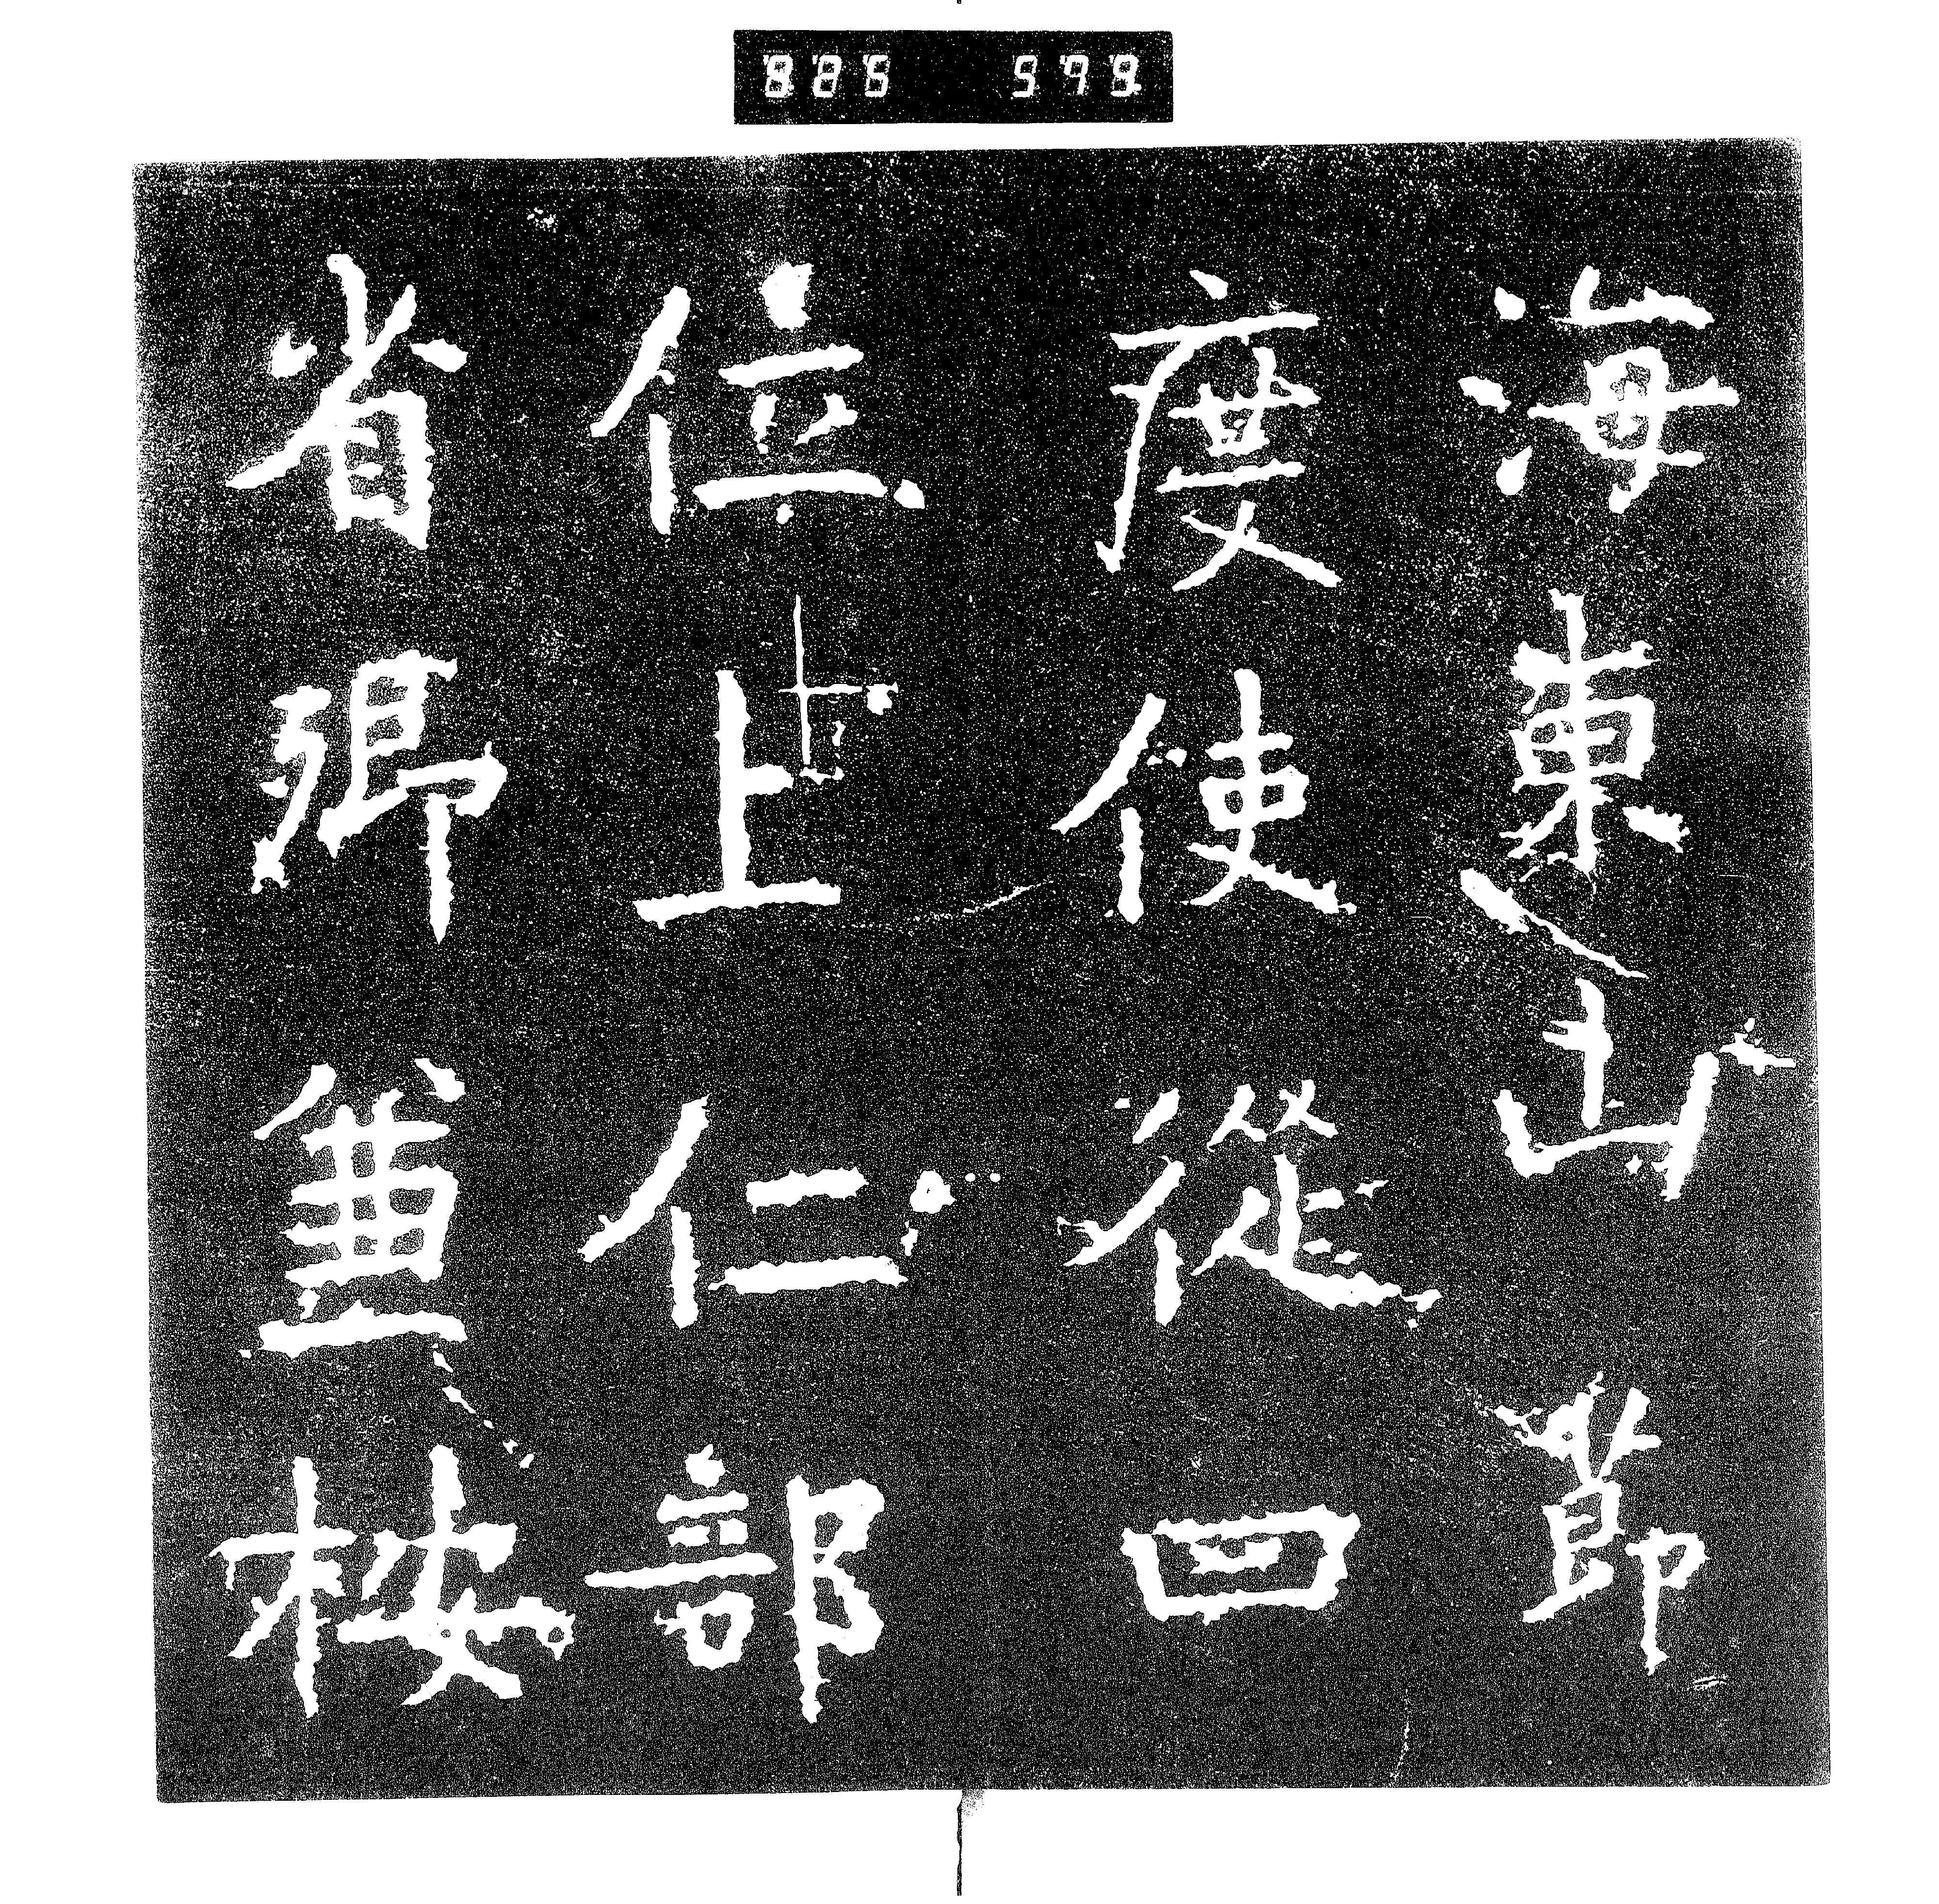 825 598
海東山節
度使從四
位上仁部
省卿兼桉